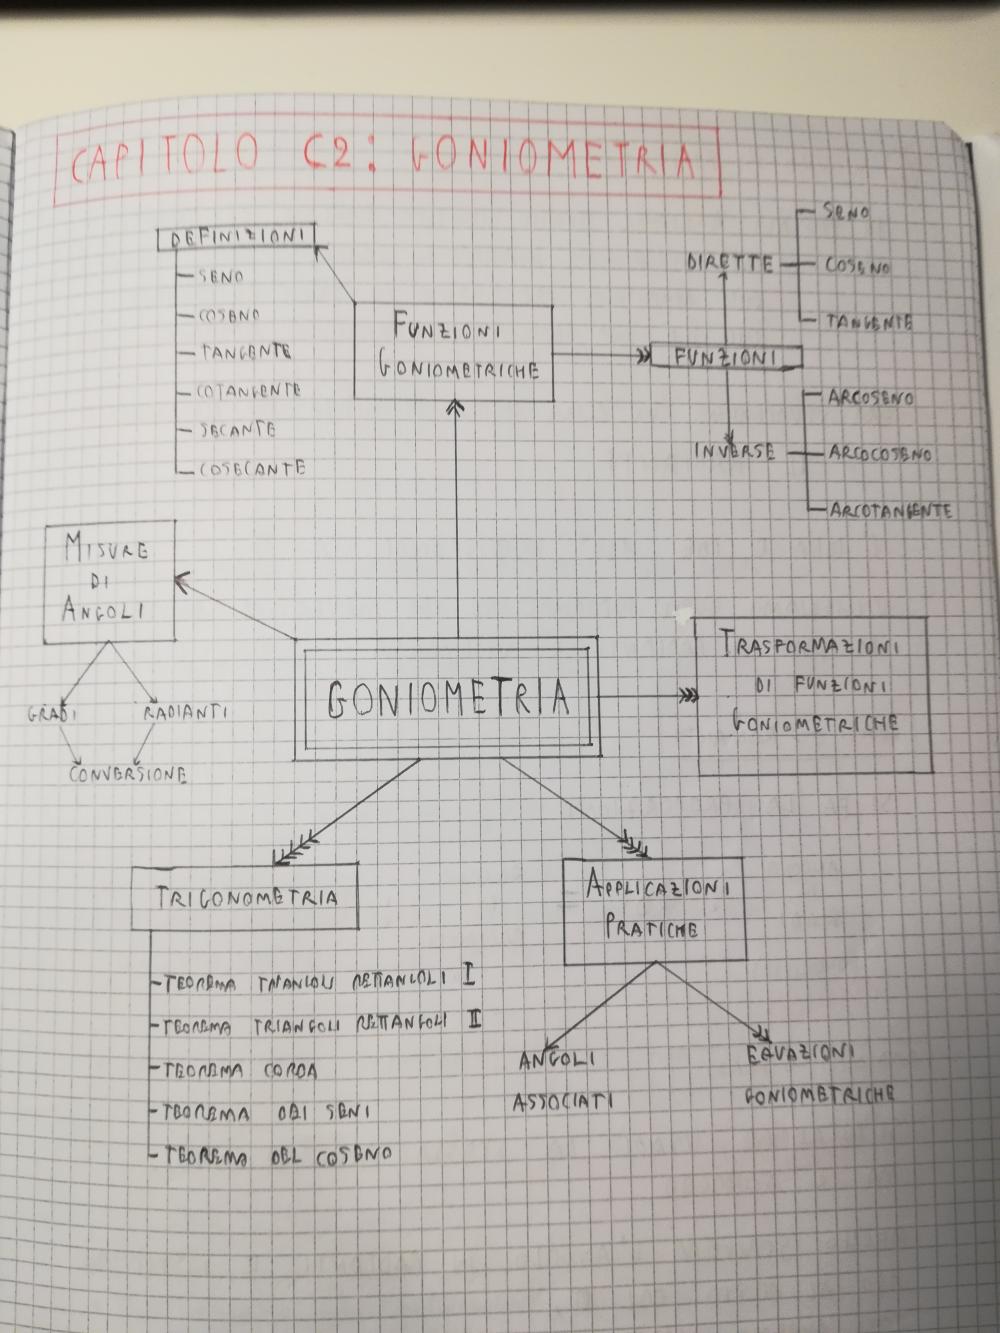 CAPITOLO C2: GONIOMETRIA
DEFINIZIONI
SENO
COSENO
TANGENTE
COTANGENTE
SECANTE
COSECANTE
FUNZIONI
GONIOMETRICHE
FUNZIONI
DIRETTE
SENO
COSENO
TANGENTE
INVERSE
ARCOSENO
ARCOCOSENO
ARCOTANGENTE
MISURE
DI
ANGOLI
GRADI
RADIANTI
CONVERSIONE
GONIOMETRIA
TRASFORMAZIONI
DI FUNZIONI
GONIOMETRICHE
TRIGONOMETRIA
-TEOREMA TRIANGOLI RETTANGOLI I
-TEOREMA TRIANGOLI RETTANGOLI II
-TEOREMA CORDA
-TEOREMA DEI SENI
-TEOREMA DEL COSENO
APPLICAZIONI
PRATICHE
ANGOLI
ASSOCIATI
EQUAZIONI
GONIOMETRICHE